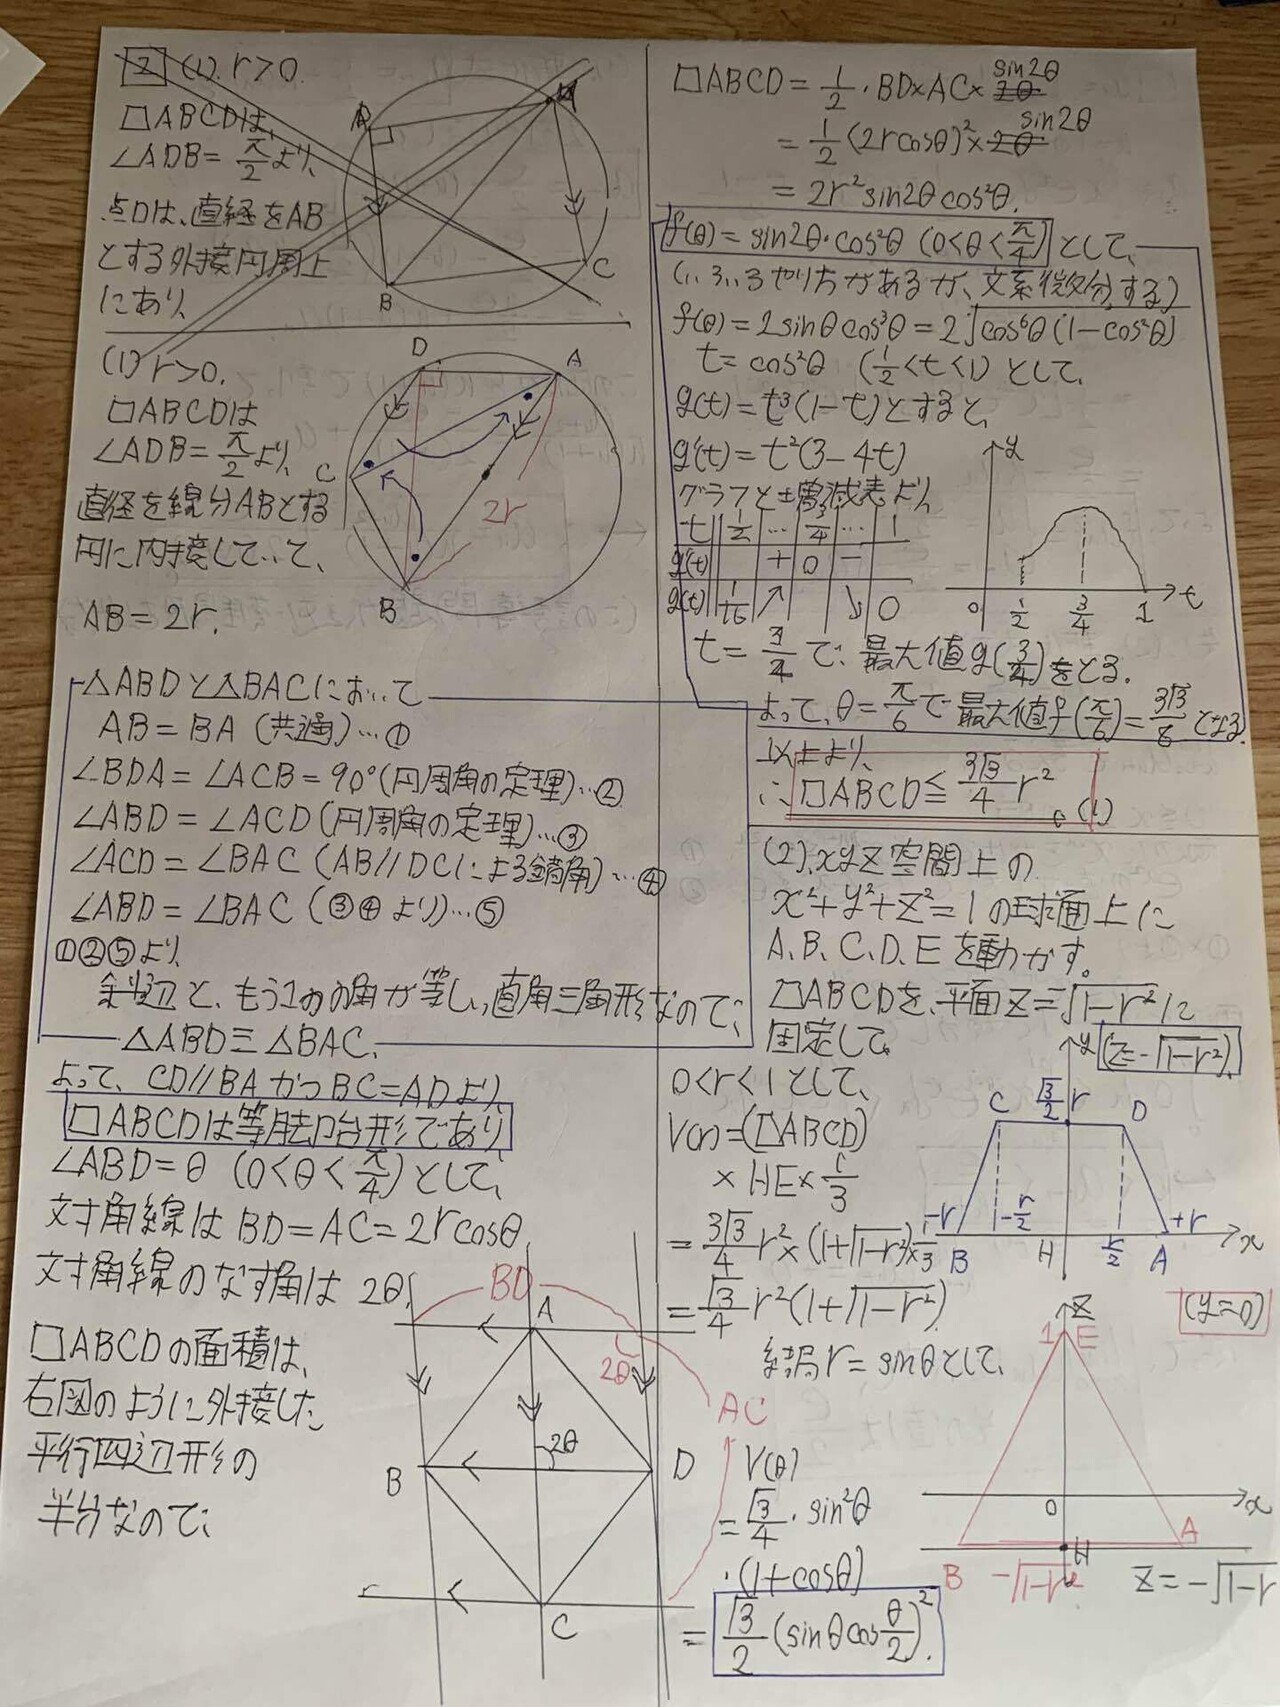 2 (1). r>0.
□ABCDは、
∠ADB= π/2 より、
点Dは、直経をAB
とする外接円周上
にあり、
A
B
C
(1) r>0.
□ABCDは
∠ADB= π/2 より、
直経を線分ABとする
円に内接していて、
AB=2r.
D
A
C
B
2r
△ABDと△BACにおいて
AB=BA (共通)…①
∠BDA=∠ACB=90°(円周角の定理)…②
∠ABD=∠ACD(円周角の定理)…③
∠ACD=∠BAC (AB//DCによる錯角)…④
∠ABD=∠BAC (③④より)…⑤
①②⑤より、
斜辺と、もう1つの角が等しい直角三角形なので、
△ABD≡△BAC.
よって、CD//BAかつBC=ADより、
□ABCDは等脚台形であり、
∠ABD=θ (0<θ<π/4)として、
対角線はBD=AC=2rcosθ
対角線のなす角は2θ.
□ABCDの面積は、
右図のように外接した
平行四辺形の
半分なので、
BD
A
2θ
AC
B
2θ
D
C
□ABCD=1/2・BD×AC× sin2θ
=1/2(2rcosθ)²× sin2θ
=2r²sin2θcos²θ.
f(θ)=sin2θ・cos²θ (0<θ<π/4)として、
(いろいろやり方があるが、文系微分する)
f(θ)=2sinθcos³θ=2√cos⁶θ(1-cos²θ)
t=cos²θ (1/2<t<1)として、
g(t)=t³(1-t)とすると、
g'(t)=t²(3-4t)
グラフと増減表より、
t 1/2 … 3/4 … 1
g'(t) + 0 -
g(t) 1/16 ↗ ↘ 0
y
0 1/2 3/4 1 t
t=3/4で、最大値g(3/4)をとる.
よって、θ=π/6で最大値f(π/6)=3√3/8となる.
以上より、
∴□ABCD≦3√3/4 r²
(1)
(2).xyz空間上の
x²+y²+z²=1の球面上に
A、B、C、D、Eを動かす。
□ABCDを、平面z=-√1-r²に
固定して、
0<r<1として、
V(r)=(□ABCD)
×HE×1/3
=3√3/4 r²×(1+√1-r²)×1/3
=√3/4 r²(1+√1-r²).
結局r=sinθとして、
V(θ)
=√3/4・sin²θ
・(1+cosθ)
=√3/2(sinθcosθ/2)².
y (z=-√1-r²).
C √3/2 r D
-r -r/2 r/2 +r x
B H A
z (y=0)
1 E
0 x
B -√1-r² H A
z=-√1-r